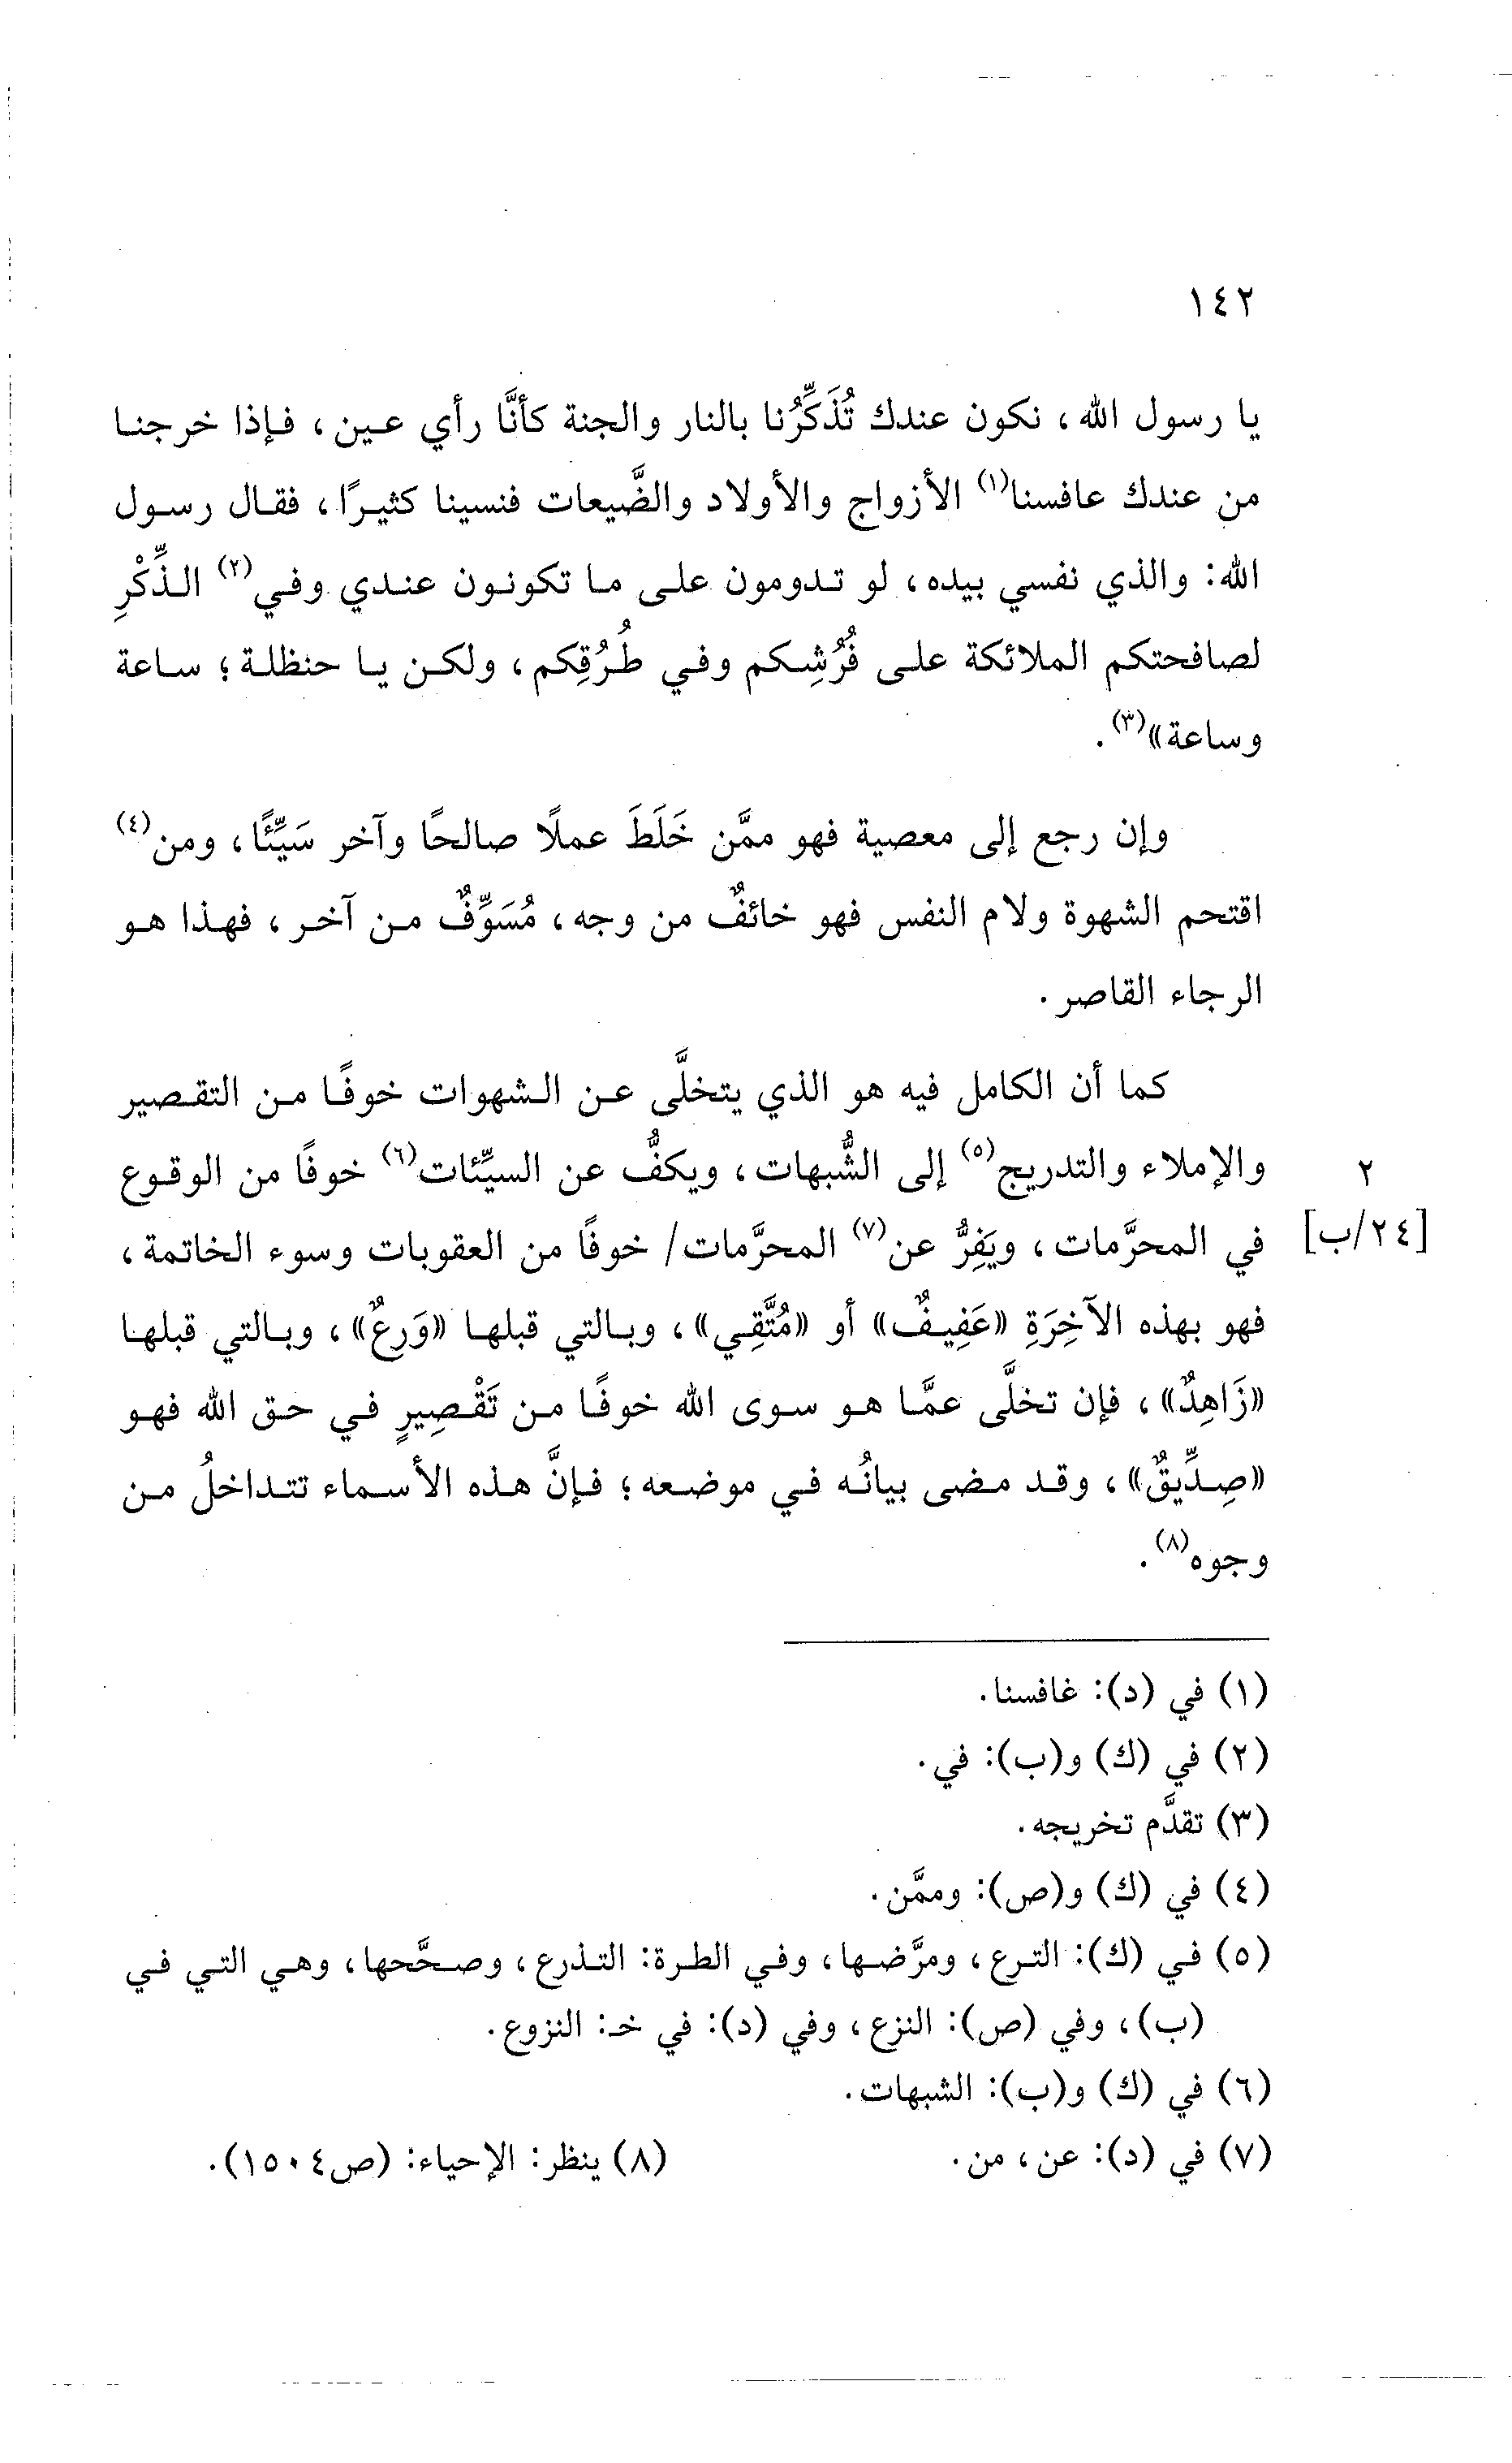 ١٤٢
يا رسول الله، نكون عندك تُذَكِّرُنا بالنار والجنة كأنَّا رأي عين، فإذا خرجنا
من عندك عافسنا(١) الأزواج والأولاد والضَّيعات فنسينا كثيرًا، فقال رسول
الله: والذي نفسي بيده، لو تدومون على ما تكونون عندي وفي(٢) الذِّكْرِ
لصافحتكم الملائكة على فُرُشِكم وفي طُرُقِكم، ولكن يا حنظلة؛ ساعة
وساعة»(٣).
وإن رجع إلى معصية فهو ممَّن خَلَطَ عملًا صالحًا وآخر سَيِّئًا، ومن(٤)
اقتحم الشهوة ولام النفس فهو خائفٌ من وجه، مُسَوِّفٌ من آخر، فهذا هو
الرجاء القاصر.
كما أن الكامل فيه هو الذي يتخلَّى عن الشهوات خوفًا من التقصير
والإملاء والتدريج(٥) إلى الشُّبهات، ويكفُّ عن السيِّئات(٦) خوفًا من الوقوع
٢
في المحرَّمات، ويَفِرُّ عن(٧) المحرَّمات/ خوفًا من العقوبات وسوء الخاتمة،
[٢٤/ب]
فهو بهذه الآخِرَةِ «عَفِيفٌ» أو «مُتَّقِي»، وبالتي قبلها «وَرِعٌ»، وبالتي قبلها
«زَاهِدٌ»، فإن تخلَّى عمَّا هو سوى الله خوفًا من تَقْصِيرٍ في حق الله فهو
«صِدِّيقٌ»، وقد مضى بيانُه في موضعه؛ فإنَّ هذه الأسماء تتداخلُ من
وجوه(٨).
(١) في (د): غافسنا.
(٢) في (ك) و(ب): في.
(٣) تقدَّم تخريجه.
(٤) في (ك) و(ص): وممَّن.
(٥) في (ك): الترع، ومرَّضها، وفي الطرة: التذرع، وصحَّحها، وهي التي في
(ب)، وفي (ص): النزع، وفي (د): في خـ: النزوع.
(٦) في (ك) و(ب): الشبهات.
(٧) في (د): عن، من.
(٨) ينظر: الإحياء: (ص١٥٠٤).